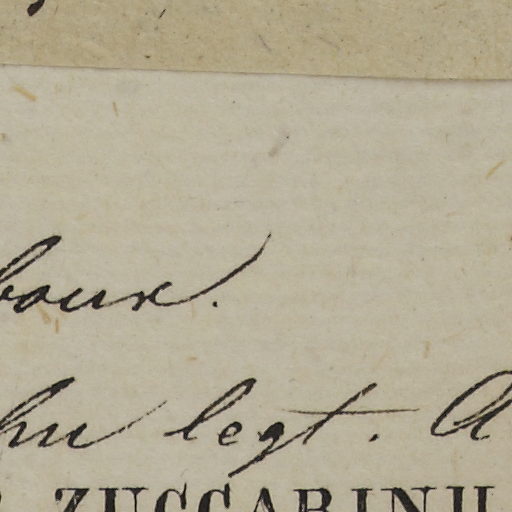 boux.
hu legt. A
ZUCCARINII